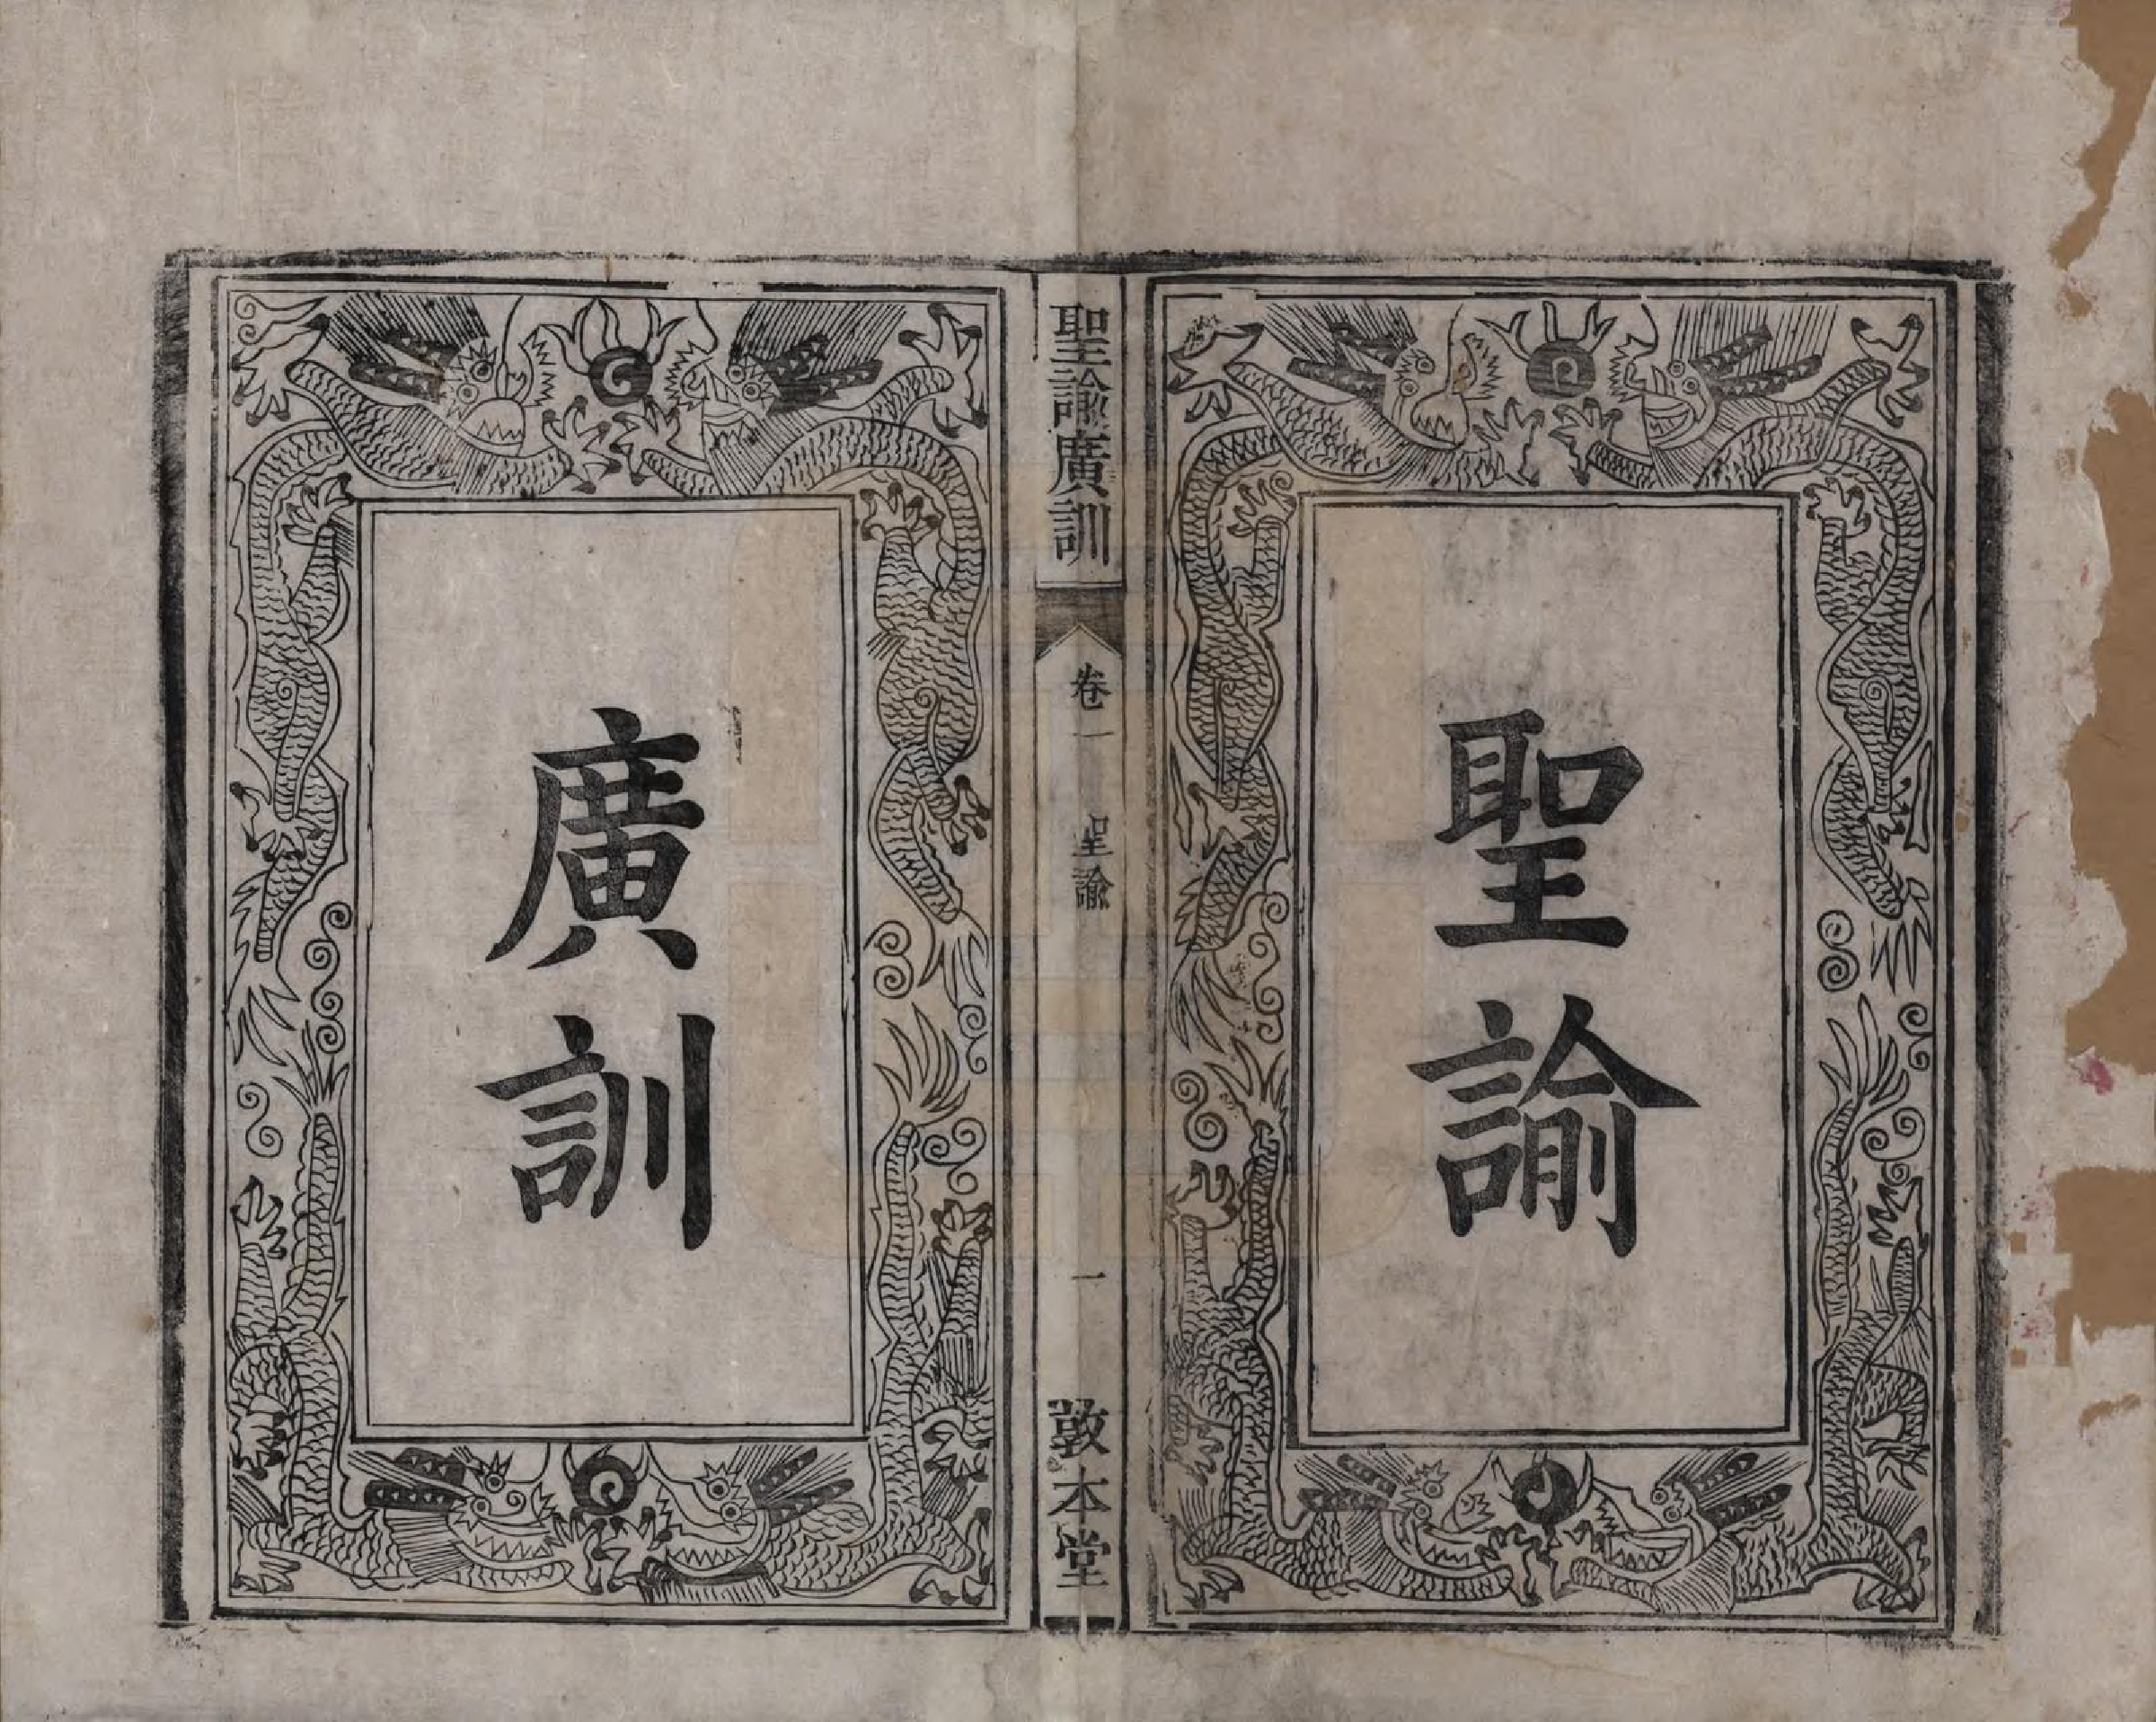 聖諭
聖諭廣訓
卷一
聖諭
一
敦本堂
廣訓